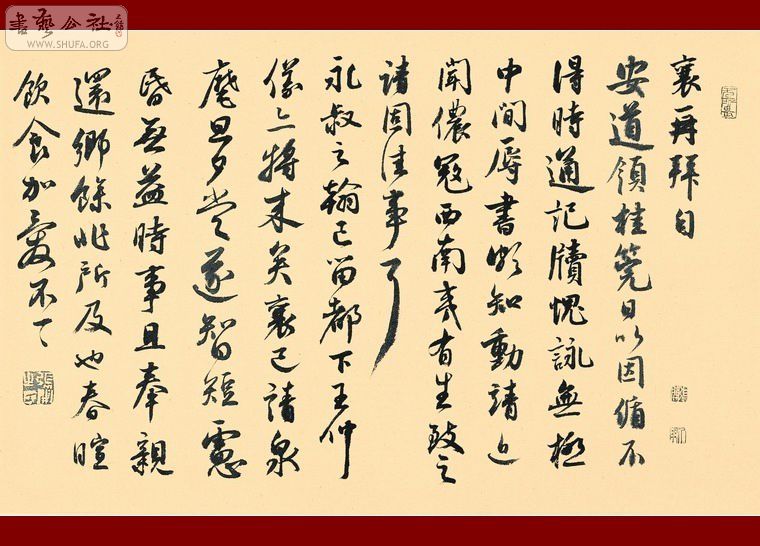 書藝公社
WWW.SHUFA.ORG
襄再拜自
安道領桂筦日以因循不
得時通記牘愧詠無極
中間辱書頗知動靖近
聞儂寇西南夷有生致之
請固佳事耳
永叔之翰已留都下王仲
儀亦將來矣襄已請泉
麾旦夕當遂智短慮
昏無益時事且奉親
還鄉餘非所及也春暄
飲食加愛不一一